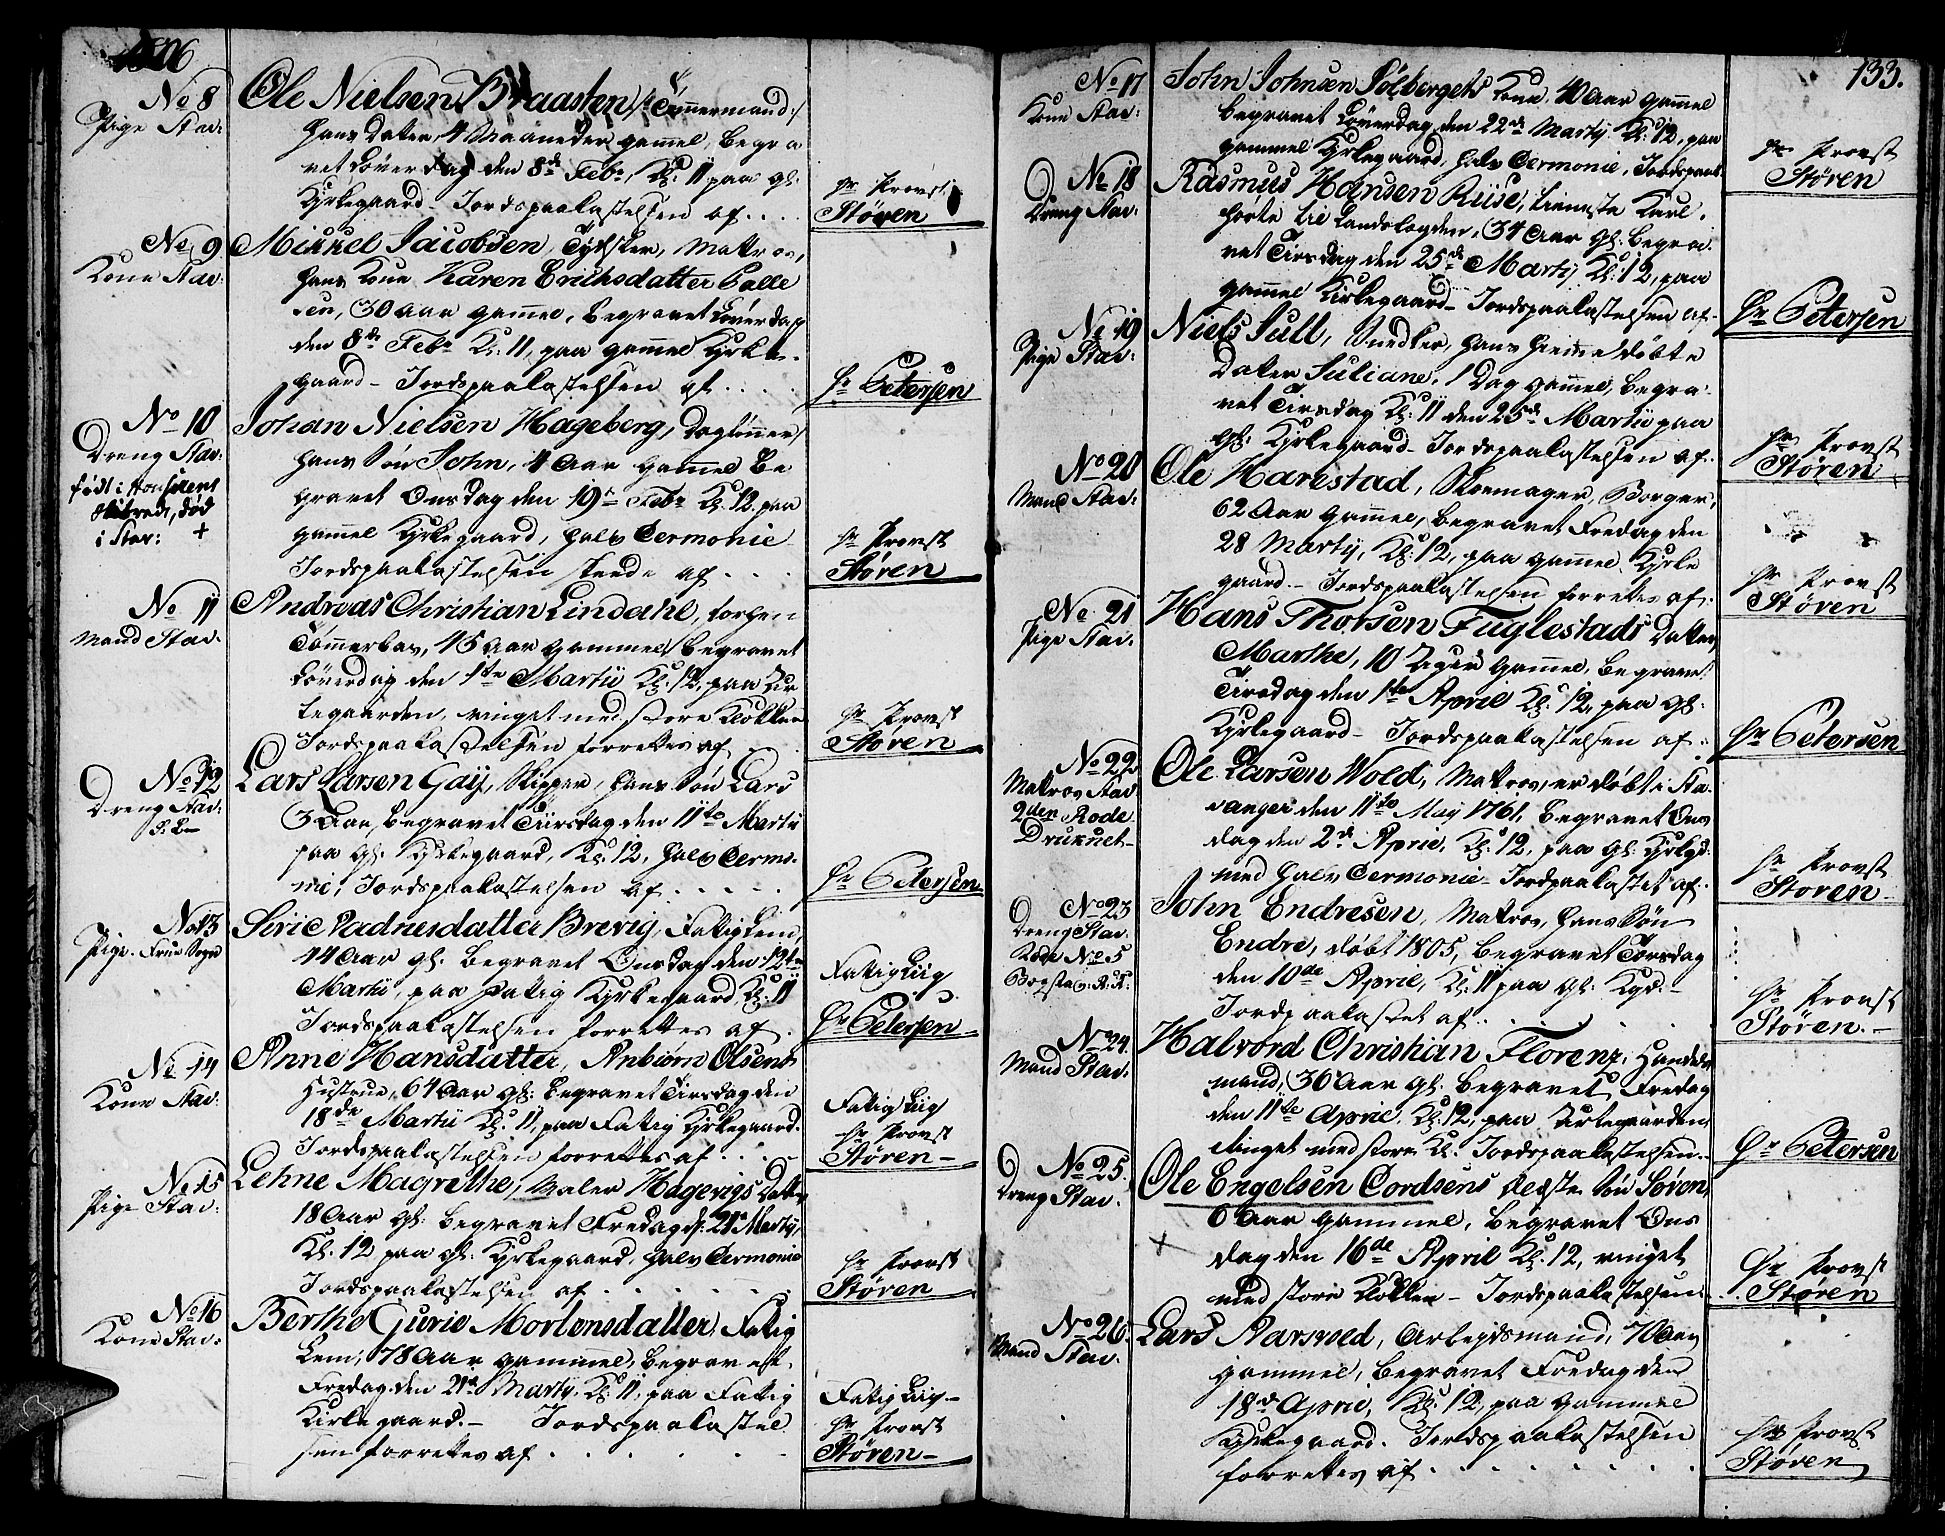 1806
No 8
Pige Stav:
Ole Nielsen Braasten /: Tømmermand :/
hans Dater 4 Maaneder gammel, begra
vet Løverdag den 8de Febr, Kl: 11 paa gl:
Kyrkegaard - Jordspaakastelsen af . . . .
Hr Provst
Støren
No 9
Kone Stav:
Mikkel Jacobsen, Tydsker, Matros,
hans Kone Karen Erichsdatter
30 Aar gammel, begravet Løverdag
den 8de Febr Kl: 11, paa gammel Kyrke-
gaard - Jordspaakastelsen af . . . .
Hr Petersen
No 10
Dreng Stav:
født i
død
i Stav: +
Johan Nielsen Hageberg, Daglønner,
hans Søn John, 4 Aar gammel Be
gravet Onsdag den 19de Febr Kl: 12, paa
gammel Kyrkegaard, halv Cermonie
Jordspaakastelsen skede af . . . .
Hr Provst
Støren
No 11
Mand Stav:
Andreas Christian Lindahl, forhen
45 Aar gammel, begravet
Løverdag den 1te Martii Kl: 12, paa Kir
kegaarden, ringet med store Klokken
Jordspaakastelsen forrettes af . .
Hr Provst
Støren
No 12
Dreng Stav:
Lars Larsen Gaij, Skipper, hans Søn Lars
3 Aar, begravet Tiirsdag den 11te Martii
paa gl: Kyrkegaard, Kl: 12, halv Cermo-
nie, Jordspaakastelsen af . . . . .
Hr Petersen
No 13
Pige. Frue Sogn
Sirie Aadnesdatter Brevig, Fattig Lem,
44 Aar gl: begravet Onsdag den 12te
Martii, paa Fattig Kyrkegaard, Kl: 11
Jordspaakastelsen forrettes af .
Fattig Liig
Hr Petersen
No 14
Kone Stav:
Anne Hansdatter, Anbiørn Olsens
Hustrue, 64 Aar gl: begravet Tirsdag den
18de Martii Kl: 11, paa Fattig Kyrkegaard.
Jordspaakastelsen forrettes af . . . .
Fattig Liig
Hr Provst
Støren -
No 15
Pige Stav:
Lehne Magrethe, Maler Hagevigs Datter,
18 Aar gl: begravet Fredag d: 21de Martij,
Kl: 12 paa gl: Kyrkegaard, halv Cermonie
Jordspaakastelsen af . . . . .
Hr Provst
Støren
No 16
Kone Stav:
Berthe Gurie Mortensdatter, Fattig
Lem, 78 Aar gammel, begravet
Fredag den 21de Martij, Kl: 11, paa Fattig
Kirkegaard. - Jordspaakastel
sen forrettes af . . . . .
Fattig Liig -
Hr Provst
Støren -
133.
No 17
Kone Stav:
John Johnsen Solbergets Kone, 40 Aar gammel
begravet Løverdag den 22de Martij Kl: 12, paa
gammel Kyrkegaard, halv Cermonie, Jordspaak
Hr Provst
Støren
No 18
Dreng Stav:
Rasmus Hansen Riise, tieneste Karl,
hørte til Landsbogden, 34 Aar gl: begra
vet Tirsdag den 25de Martij Kl: 12, paa
gammel Kirkegaard - Jordspaakastelsen af -
Hr Petersen
No 19
Pige Stav:
Niels Jull, Snedker, hans hiemmedøbte
Dater Juliane, 1 Dag gammel, begra-
vet Tirsdag Kl: 11 den 25de Martii paa
gl: Kyrkegaard - Jordspaakastelsen af .
Hr Provst
Støren
No 20
Mand Stav:
Ole Harestad, Skomager, Borger,
62 Aar gammel, begravet Fredag den
28 Martij, Kl: 12, paa gammel Kyrke
gaard. - Jordspaakastelsen forrettes af .
Hr Provst
Støren
No 21
Pige Stav:
Hans Thorsen Fuglestads Datter
Marthe, 10 Uger gammel, begravet
Tirsdag den 1te April Kl: 12, paa gl:
Kyrkegaard - Jordspaakastelsen af .
Hr Petersen
No 22
Matros Stav
2den Rode
Druknet -
Ole Larsen Wold, Matros, er døbt i Sta-
vanger den 11te May 1761, begravet Ons
dag den 2de April, Kl: 12, paa gl: Kyrkgd:
med halv Cermonie - Jordpaakastet af .
Hr Provst
Støren -
No 23
Dreng Stav.
Rode No 5
Bogstav: K.K:
John Endresen, Matros, hans Søn
Endre, døbt 1805, begravet Torsdag
den 10de April, Kl: 11 paa gl: Kgd: -
Jordpaakastet af . . . .
Hr Provst
Støren. -
No 24.
Mand Stav:
Halvord Christian Florenz, Handels
mand, 36 Aar gl: begravet Fredag
den 11te April, Kl: 12, paa Kirkegaarden,
ringet med store Kl: Jordspaakastelsen -
Hr Petersen
No 25.
Dreng Stav:
+
Ole Engelsen Cordsens ældste Søn Søren,
6 Aar gammel, begravet Ons
dag den 16de April Kl: 12, ringet
med store Klokken - Jordspaakastelsen:
Hr Provst
Støren
No 26.
Mand Stav.
Lars Narvoed, Arbejdsmand, 70 Aar
gammel, begravet Fredag den
18de April, Kl: 12, paa gammel
Kyrkegaard. Jordspaakastelsen
forrettes af . . . . . .
Hr Provst
Støren